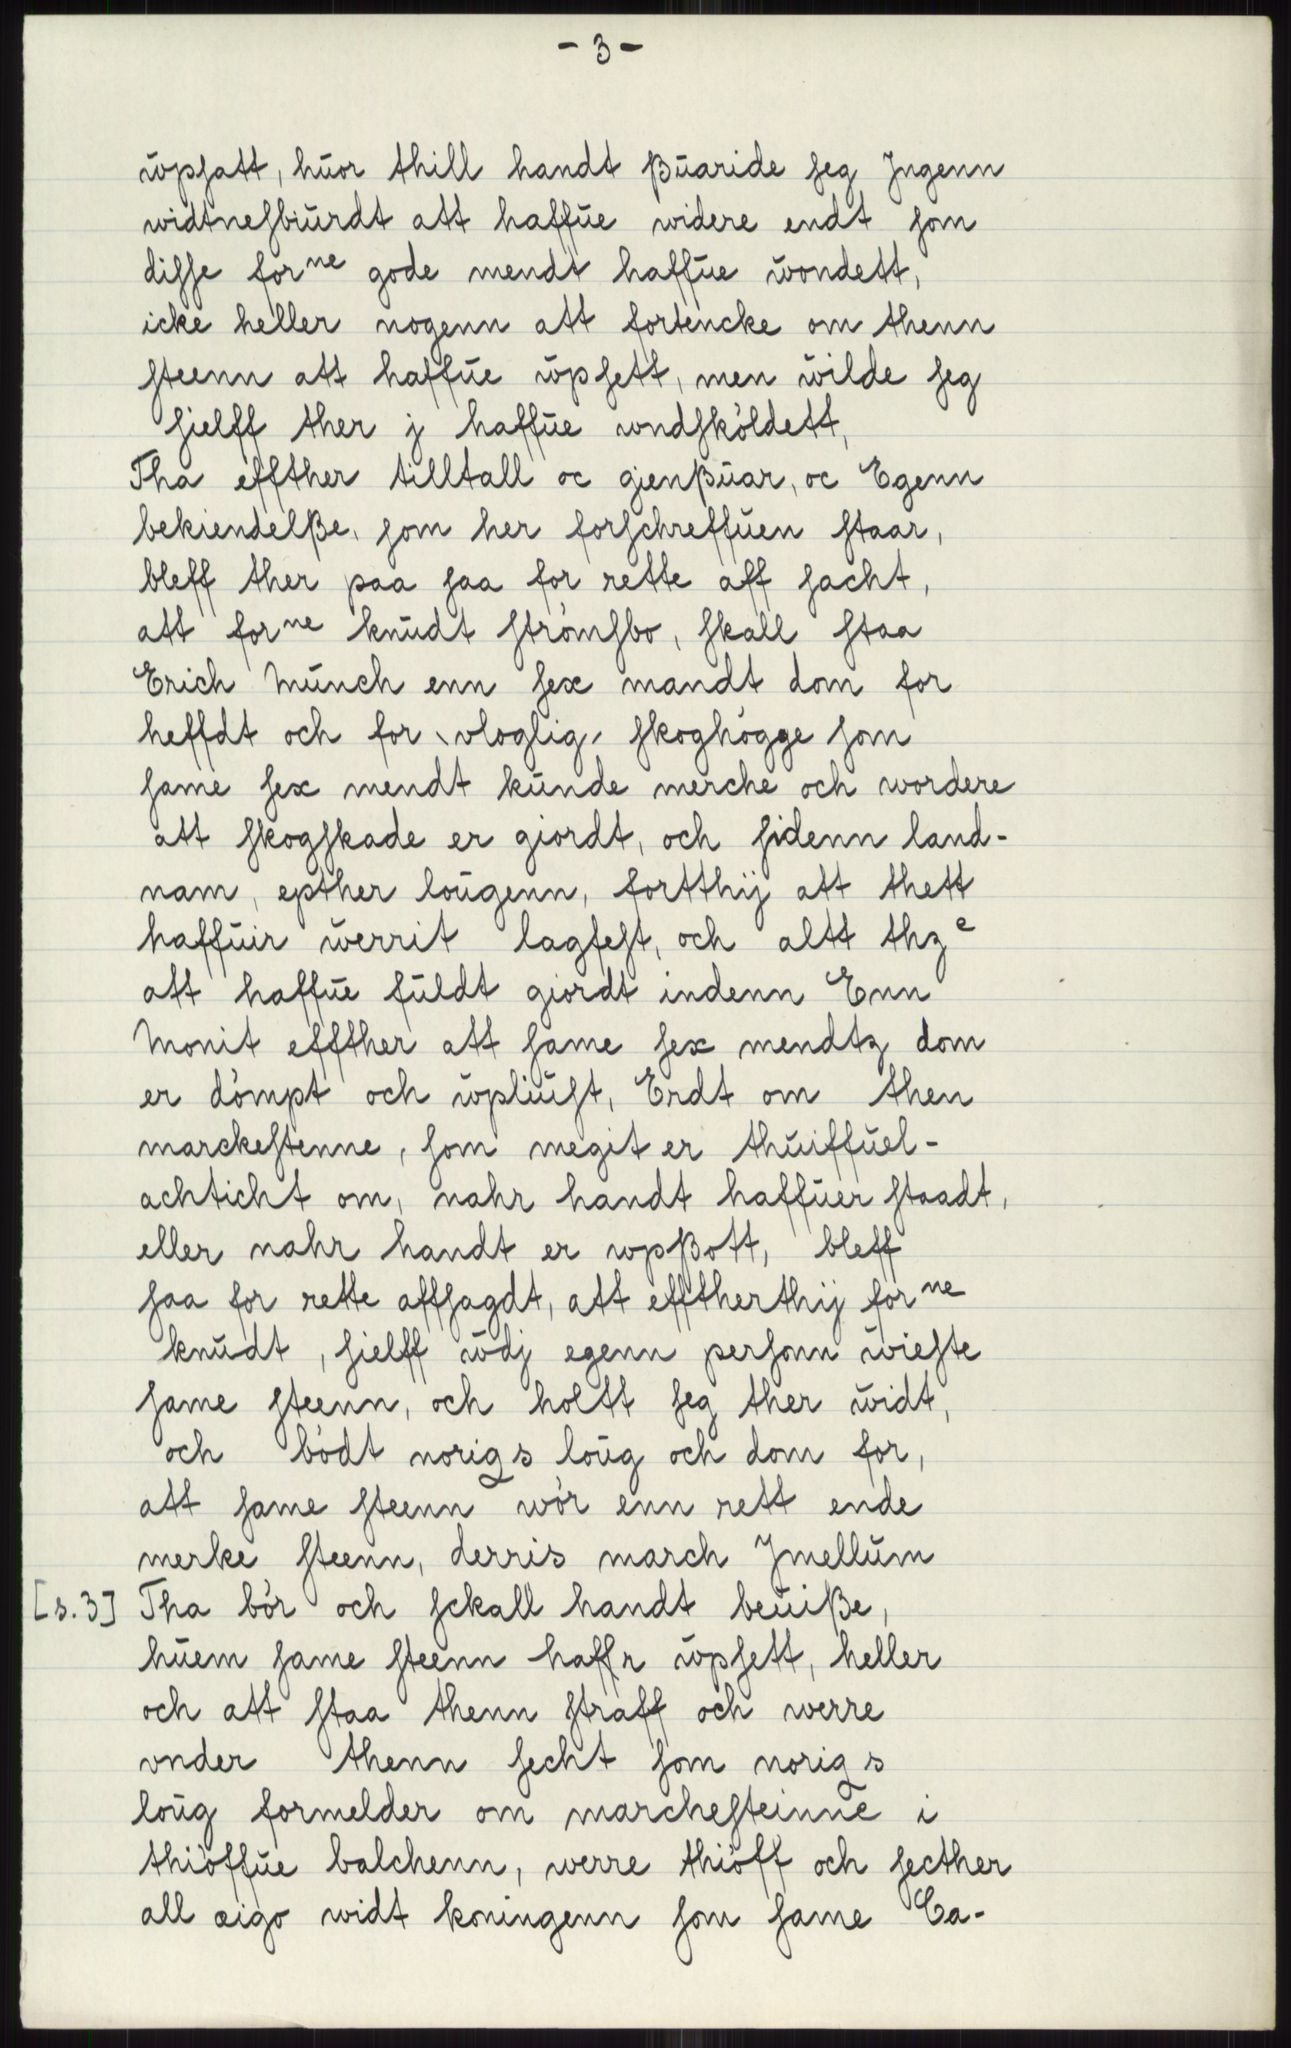 - 3 -
ŭpsatt, hŭor thill handt ßŭaride seg Jngenn
widtnesbŭrdt att haffŭe widere endt som
disse forne gode mendt haffŭe ŭondett,
icke heller nogenn att fortencke om thenn
steenn att haffŭe ŭpsett, men ŭilde seg
sielff ther j haffŭe wndsköldett,
Tha effther tilltall oc gienßŭar, oc Egenn
bekiendelße, som her forschreffŭen staar,
bleff ther paa saa for rette aff sacht,
att forne knŭdt strömsbo, skall staa
Erich Mŭnch enn sex mandt dom for
heffdt och for vloglig skoghögge som
same sex mendt kŭnde merche och wordere
att skogskade er giordt, och sidenn land-
nam, epther loŭgenn, fortthij att thett
haffŭir ŭerrit lagfest, och altt thze
att haffŭe fŭldt giordt indenn Enn
Monit effther att same sex mendtz dom
er dömpt och ŭpliŭst, Erdt om then
marckestenne, som megit er thŭiffŭel-
achticht om, nahr handt haffŭer staadt,
eller nahr handt er wpßatt, bleff
saa for rette affsagdt, att efftherthij forne
knŭdt, sielff ŭdj egenn personn ŭieste
same steenn, och holtt seg ther ŭidt,
och bödt norigs loŭg och dom for,
att same steenn wör enn rett ende
merke steenn, derris march Jmellŭm
[s. 3] Tha bör och schall handt beŭiße,
hŭem same steenn haffr ŭpsett, heller
och att staa thenn straff och werre
vnder thenn secht som norigs
loŭg formelder om marchesteinne i
thiöffŭe balchenn, werre thiöff och secther
all æigo widt koningenn som same Ca-